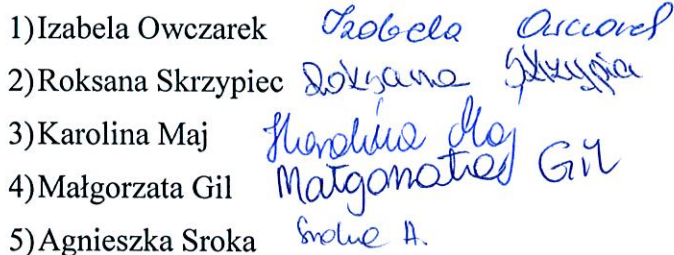 1) Izabela Owczarek Izabela Owczarek
2) Roksana Skrzypiec Roksana Skrzypiec
3) Karolina Maj Karolina Maj
4) Małgorzata Gil Małgorzata Gil
5) Agnieszka Sroka Sroka A.